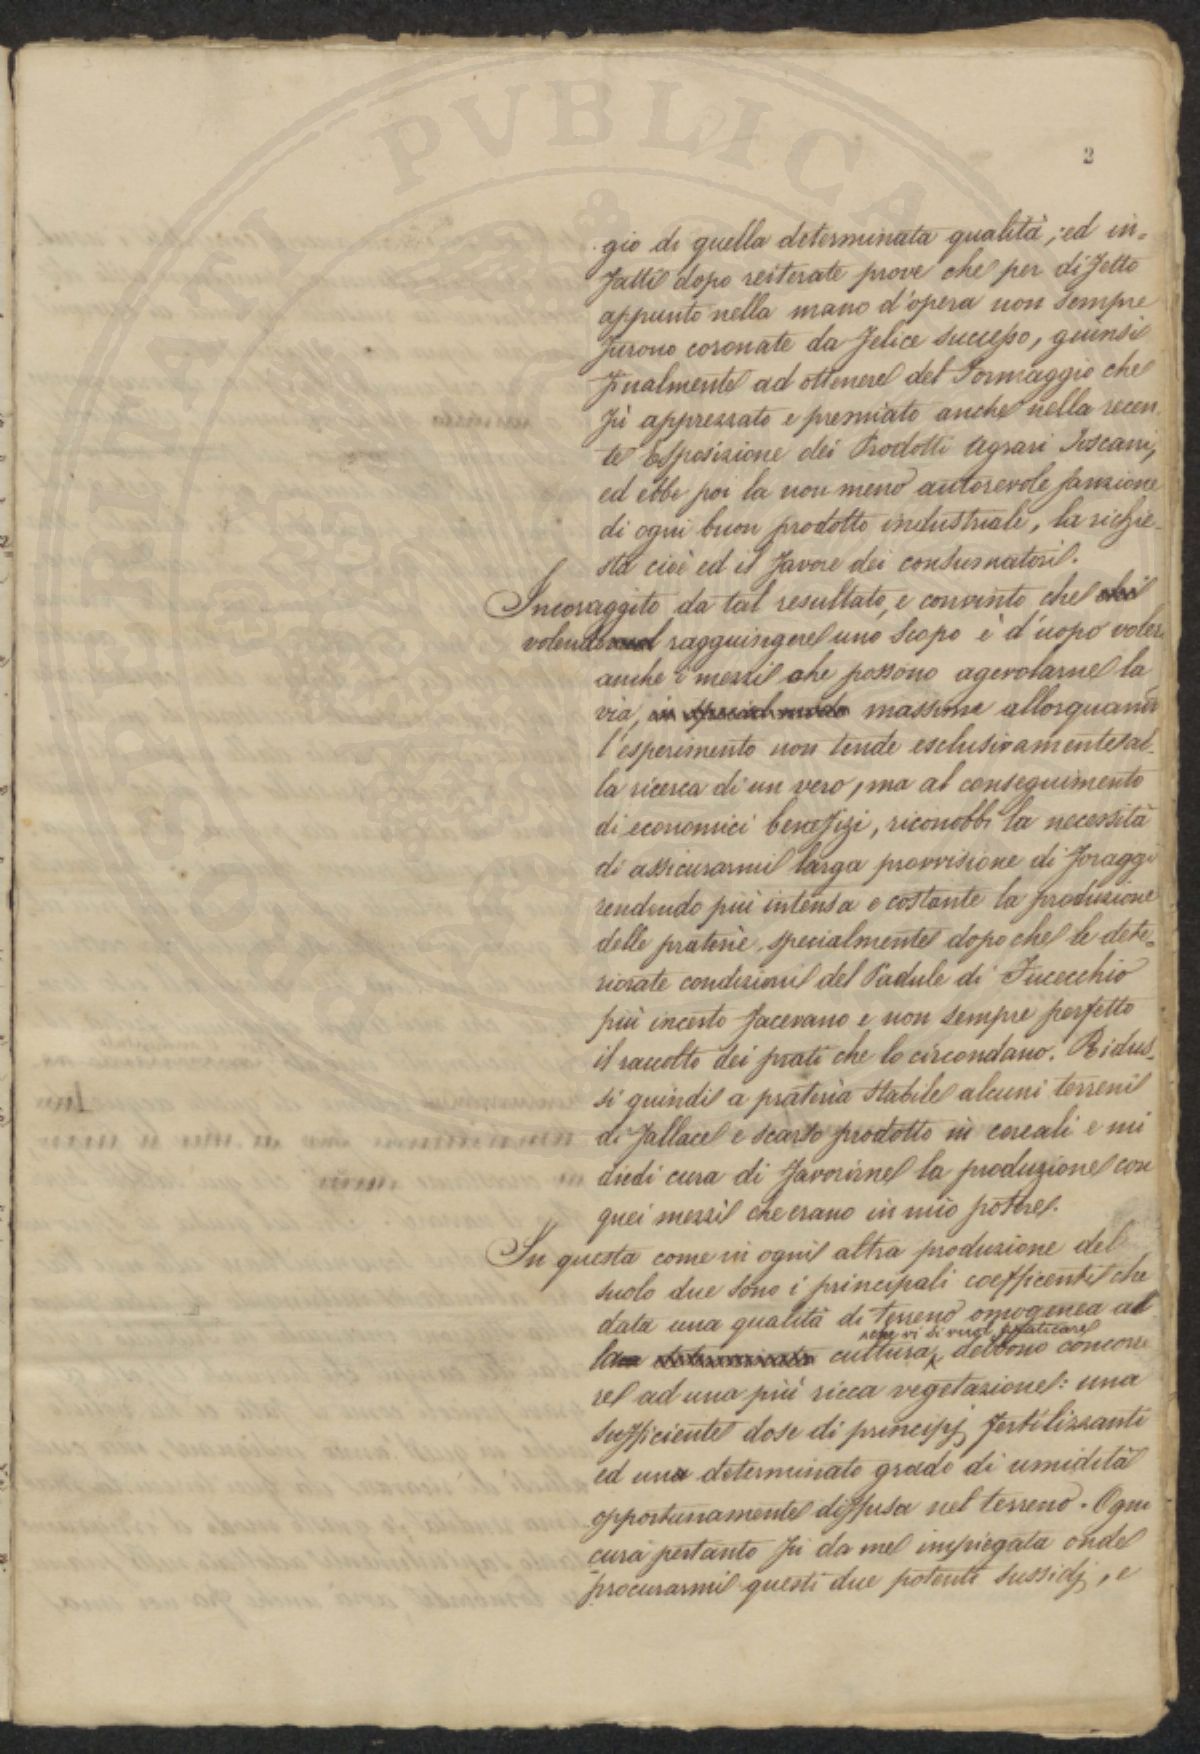 2
gio di quella determinata qualità; ed in=
fatti dopo reiterate prove che per difetto
appunto nella mano d'opera non sempre
furono coronate da felice successo, giunsi
finalmente ad ottenere del Formaggio che
fù apprezzato e premiato anche nella recen
te Esposizione dei Prodotti Agrari Toscani,
ed ebbe poi la non meno autorevole sanzione
di ogni buon prodotto industriale, la richie=
sta cioè ed il favore dei consumatori.
Incoraggito da tal resultato, e convinto che chi
volendo raggiungere uno scopo è d'uopo voler
anche i mezzi che possono agevolarne la
via, in special modo massime allorquando
l'esperimento non tende esclusivamente al=
la ricerca di un vero, ma al conseguimento
di economici benefizi, riconobbi la necessità
di assicurarmi larga provvisione di foraggi
rendendo più intensa e costante la produzione
delle praterie, specialmente dopo che le dete=
riorate condizioni del Padule di Fucecchio
più incerto facevano e non sempre perfetto
il raccolto dei prati che lo circondano. Ridus=
si quindi a prateria stabile alcuni terreni
di fallace e scarso prodotto in cereali e mi
diedi cura di favorirne la produzione con
quei mezzi che erano in mio potere.
In questa come in ogni altra produzione del
suolo due sono i principali coefficenti che
data una qualità di terreno omogenea al
che vi si vuol praticare
la determinata cultura, debbono concorre
re ad una più ricca vegetazione: una
sufficiente dose di principj fertilizzanti
ed una determinato grado di umidità
opportunamente diffusa nel terreno. Ogni
cura pertanto fu da me impiegata onde
procurarmi questi due potenti sussidj, e
PVBLICA